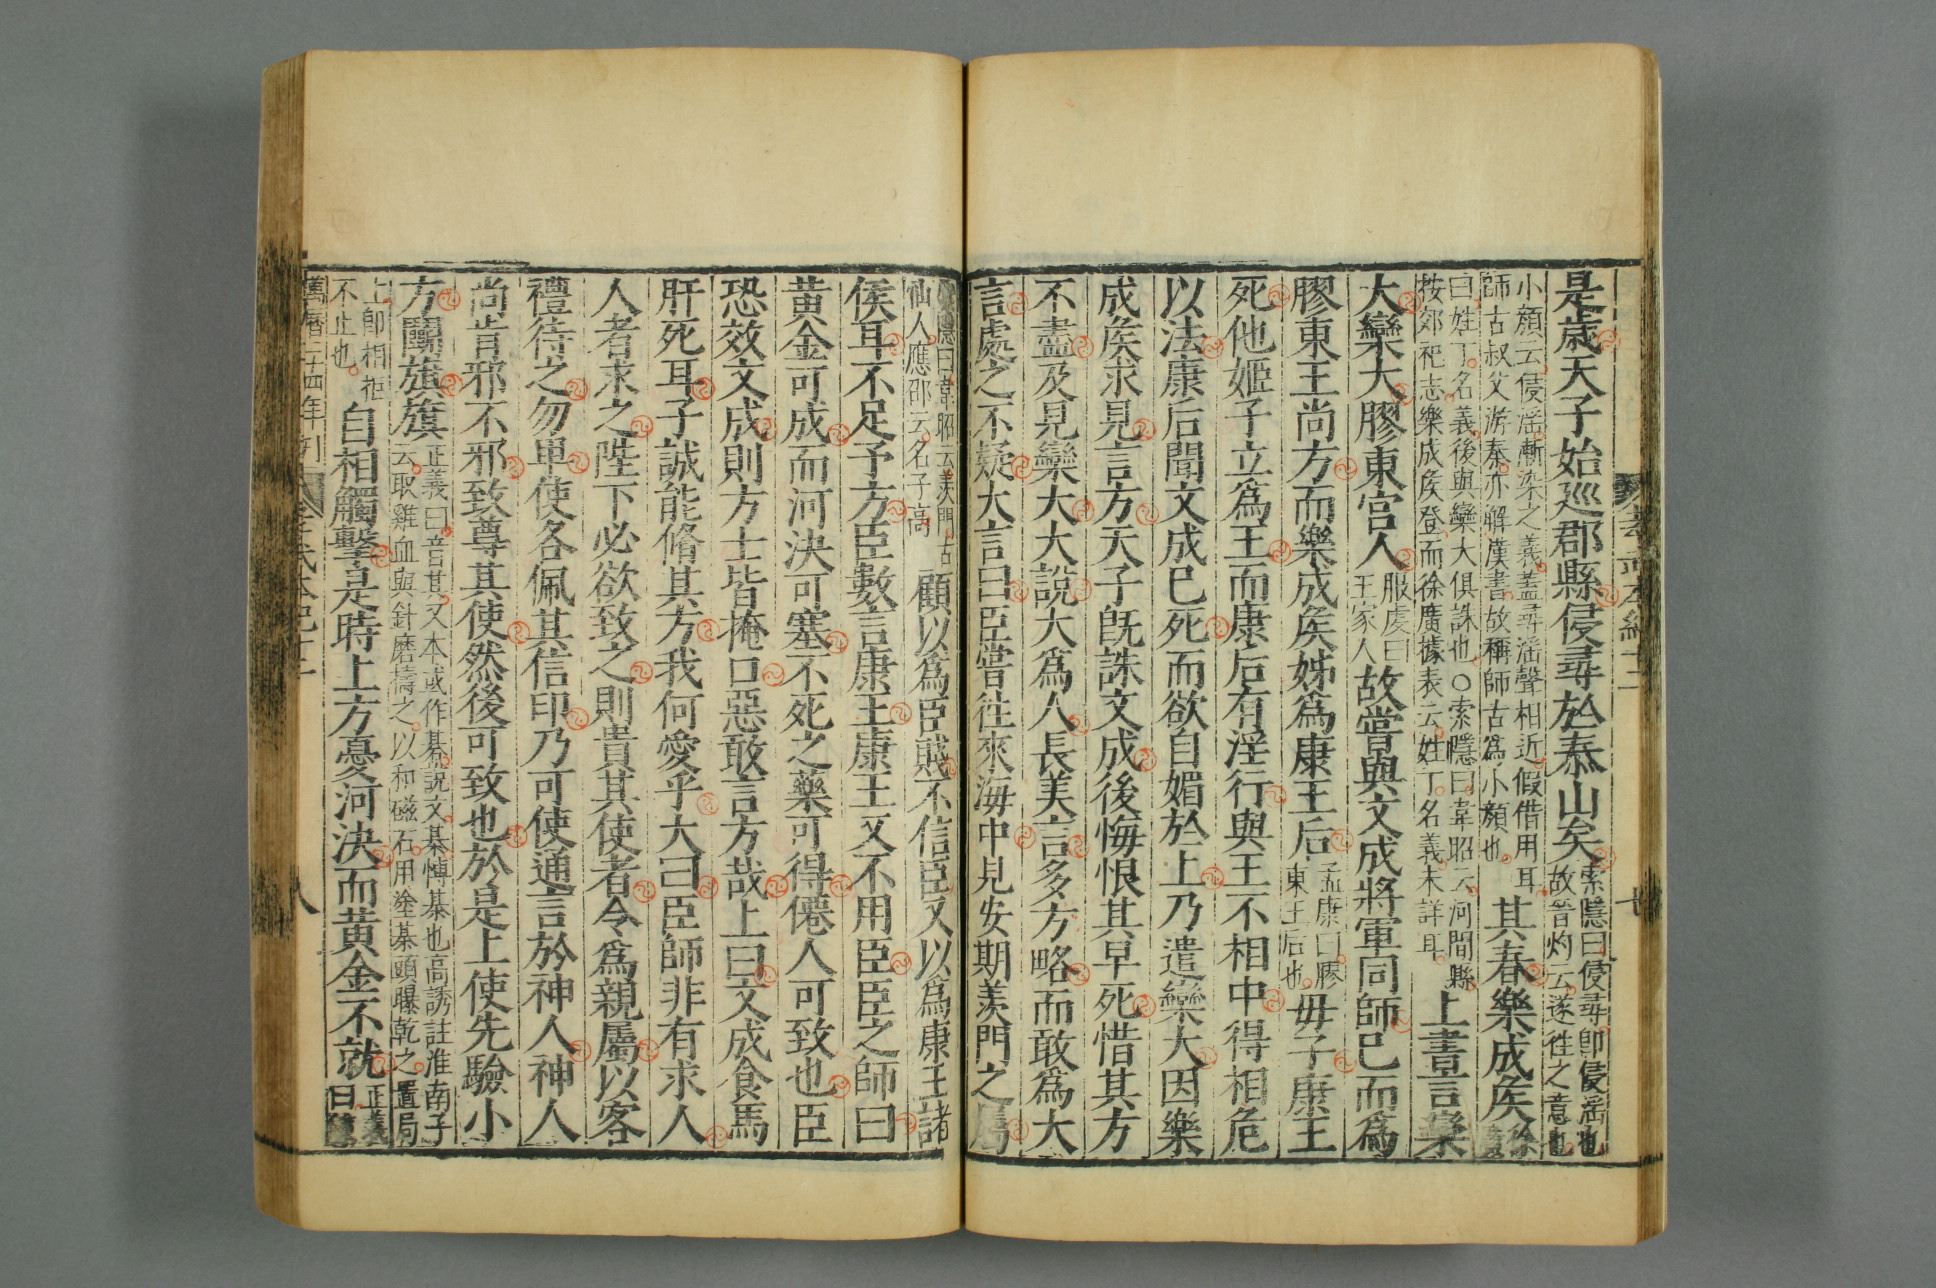 孝武本紀十二
是歲天子始巡郡縣侵尋於泰山矣索隱曰侵尋即侵淫也
故晉灼云遂往之意也
小顏云侵淫漸染之義蓋尋淫聲相近假借用耳
師古叔父游秦亦解漢書故稱師古爲小顏也
其春樂成侯徐廣
曰姓丁名義後與欒大俱誅也○索隱曰韋昭云河間縣
按郊祀志樂成侯登而徐廣據表云姓丁名義未詳耳
上書言欒
大欒大膠東宮人服虔曰
王家人
故嘗與文成將軍同師已而爲
膠東王尚方而樂成侯姊爲康王后孟康曰膠
東王后也
毋子康王
死他姬子立爲王而康后有淫行與王不相中得相危
以法康后聞文成已死而欲自媚於上乃遣欒大因樂
成侯求見言方天子旣誅文成後悔恨其早死惜其方
不盡及見欒大大說大爲人長美言多方略而敢爲大
言處之不疑大言曰臣嘗往來海中見安期羨門之屬
索隱曰韋昭云羨門古
仙人應邵云名子高
顧以爲臣賤不信臣又以爲康王諸
侯耳不足予方臣數言康王康王又不用臣臣之師曰
黃金可成而河決可塞不死之藥可得僊人可致也臣
恐效文成則方士皆掩口惡敢言方哉上曰文成食馬
肝死耳子誠能脩其方我何愛乎大曰臣師非有求人
人者求之陛下必欲致之則貴其使者令爲親屬以客
禮待之勿卑使各佩其信印乃可使通言於神人神人
尚肯邪不邪致尊其使然後可致也於是上使先驗小
方鬭旗旗正義曰音其又本或作棊說文棊博棊也高誘註淮南子
云取雞血與針磨擣之以和磁石用塗棊頭曝乾之置局
上即相拒
不止也
自相觸擊是時上方憂河決而黃金不就正義
曰
萬曆二十四年刊
八